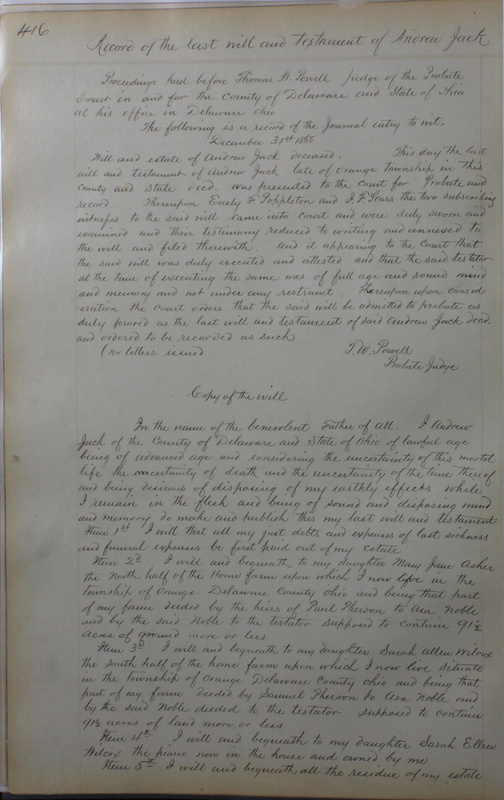 416
Record of the last will and testament of Andrew Jack
Proceedings had before Thomas W Powell Judge of the Probate
Court in and for the County of Delaware and State of Ohio
at his office in Delaware Ohio
The following is a record of the Journal entry to wit,
December 31st 1865
Will and estate of Andrew Jack deceased. This day the last
will and testament of Andrew Jack late of Orange Township in this
County and State decd. was presented to the court for Probate and
record. Thereupon Early F Poppleton and J. F. Sears the two subscribing
witnesses to the said will came into court and were duly sworn and
examined and their testimony reduced to writing and annexed to
the will and filed therewith. And it appearing to the Court that
the said will was duly executed and attested and that the said testator
at the time of executing the same was of full age and sound mind
and memory and not under any restraint. Thereupon upon consid
eration the court orders that the said will be admitted to probate as
duly proved as the last will and testament of said Andrew Jack decd.
and ordered to be recorded as such
(no letters issued T. W. Powell
Probate Judge
Copy of the will
In the name of the benevolent Father of all. I Andrew
Jack of the County of Delaware and State of Ohio of lawful age
being of advanced age and considering the uncertainty of this mortal
life the uncertainty of death and the uncertainty of the time thereof
and being desirous of disposing of my earthly effects while
I remain in the flesh and being of sound and disposing mind
and memory do make and publish this my last will and testament
Item 1st I will that all my just debts and expenses of last sickness
and funeral expenses be first paid out of my estate
Item 2d I will and bequeath to my daughter Mary Jane Asher
the North half of the Home farm upon which I now live in the
township of Orange Delaware County Ohio and being that part
of my farm deeded by the heirs of Paul Pherson to Asa Noble
and by the said Noble to the testator supposed to contain 91½
acres of ground more or less
Item 3d I will and bequeath to my daughter Sarah Allen Wilcox
the south half of the home farm upon which I now live situate
in the township of Orange Delaware County Ohio and being that
part of my farm deeded by Samuel Pherson to Asa Noble and
by the said Noble deeded to the testator supposed to contain
91½ acres of land more or less
Item 4th I will and bequeath to my daughter Sarah Ellen
Wilcox the piano now in the house and owned by me
Item 5th I will and bequeath all the residue of my estate